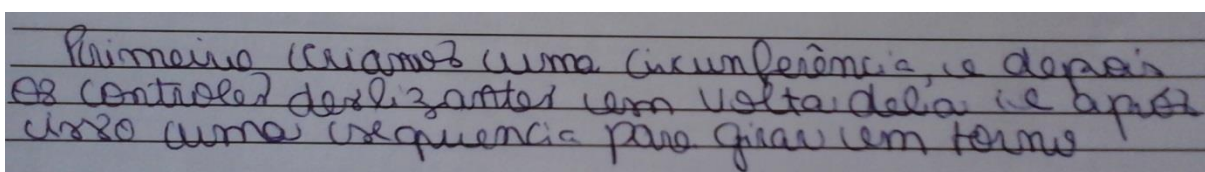 Primeiro criamos uma circunferência, e depois
os controles deslizantes em volta dela e após
isso uma sequencia para girar em torno